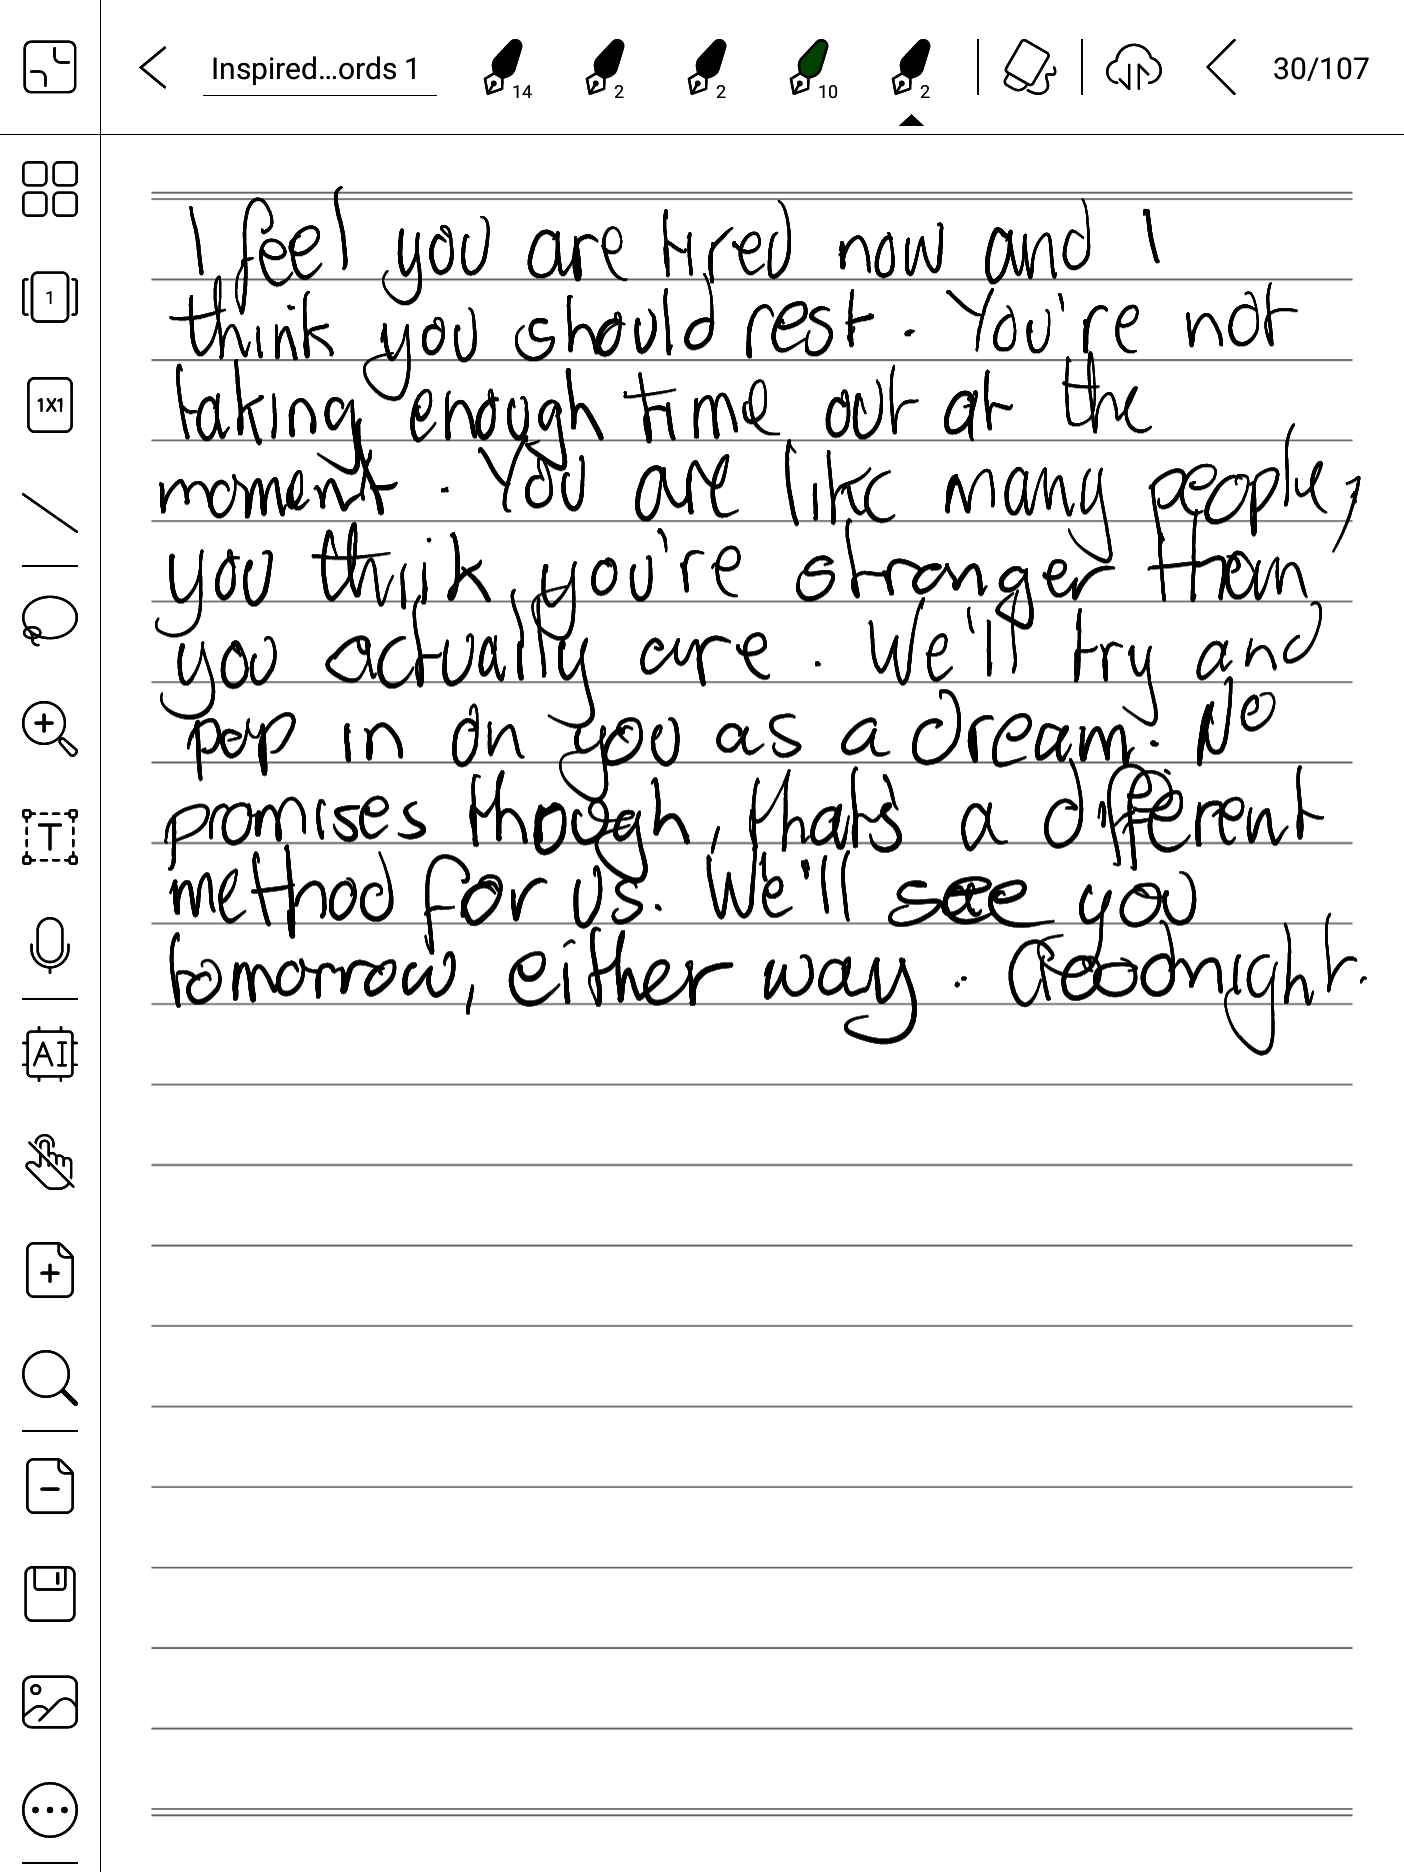 Inspired...ords 1
14
2
2
10
2
30/107
1
1X1
T
AI
I feel you are tired now and I
think you should rest. You're not
taking enough time out at the
moment. You are like many people,
you think you're stronger than
you actually are. We'll try and
pop in on you as a dream. No
promises though, that's a different
method for us. We'll see you
tomorrow, either way. Goodnight.